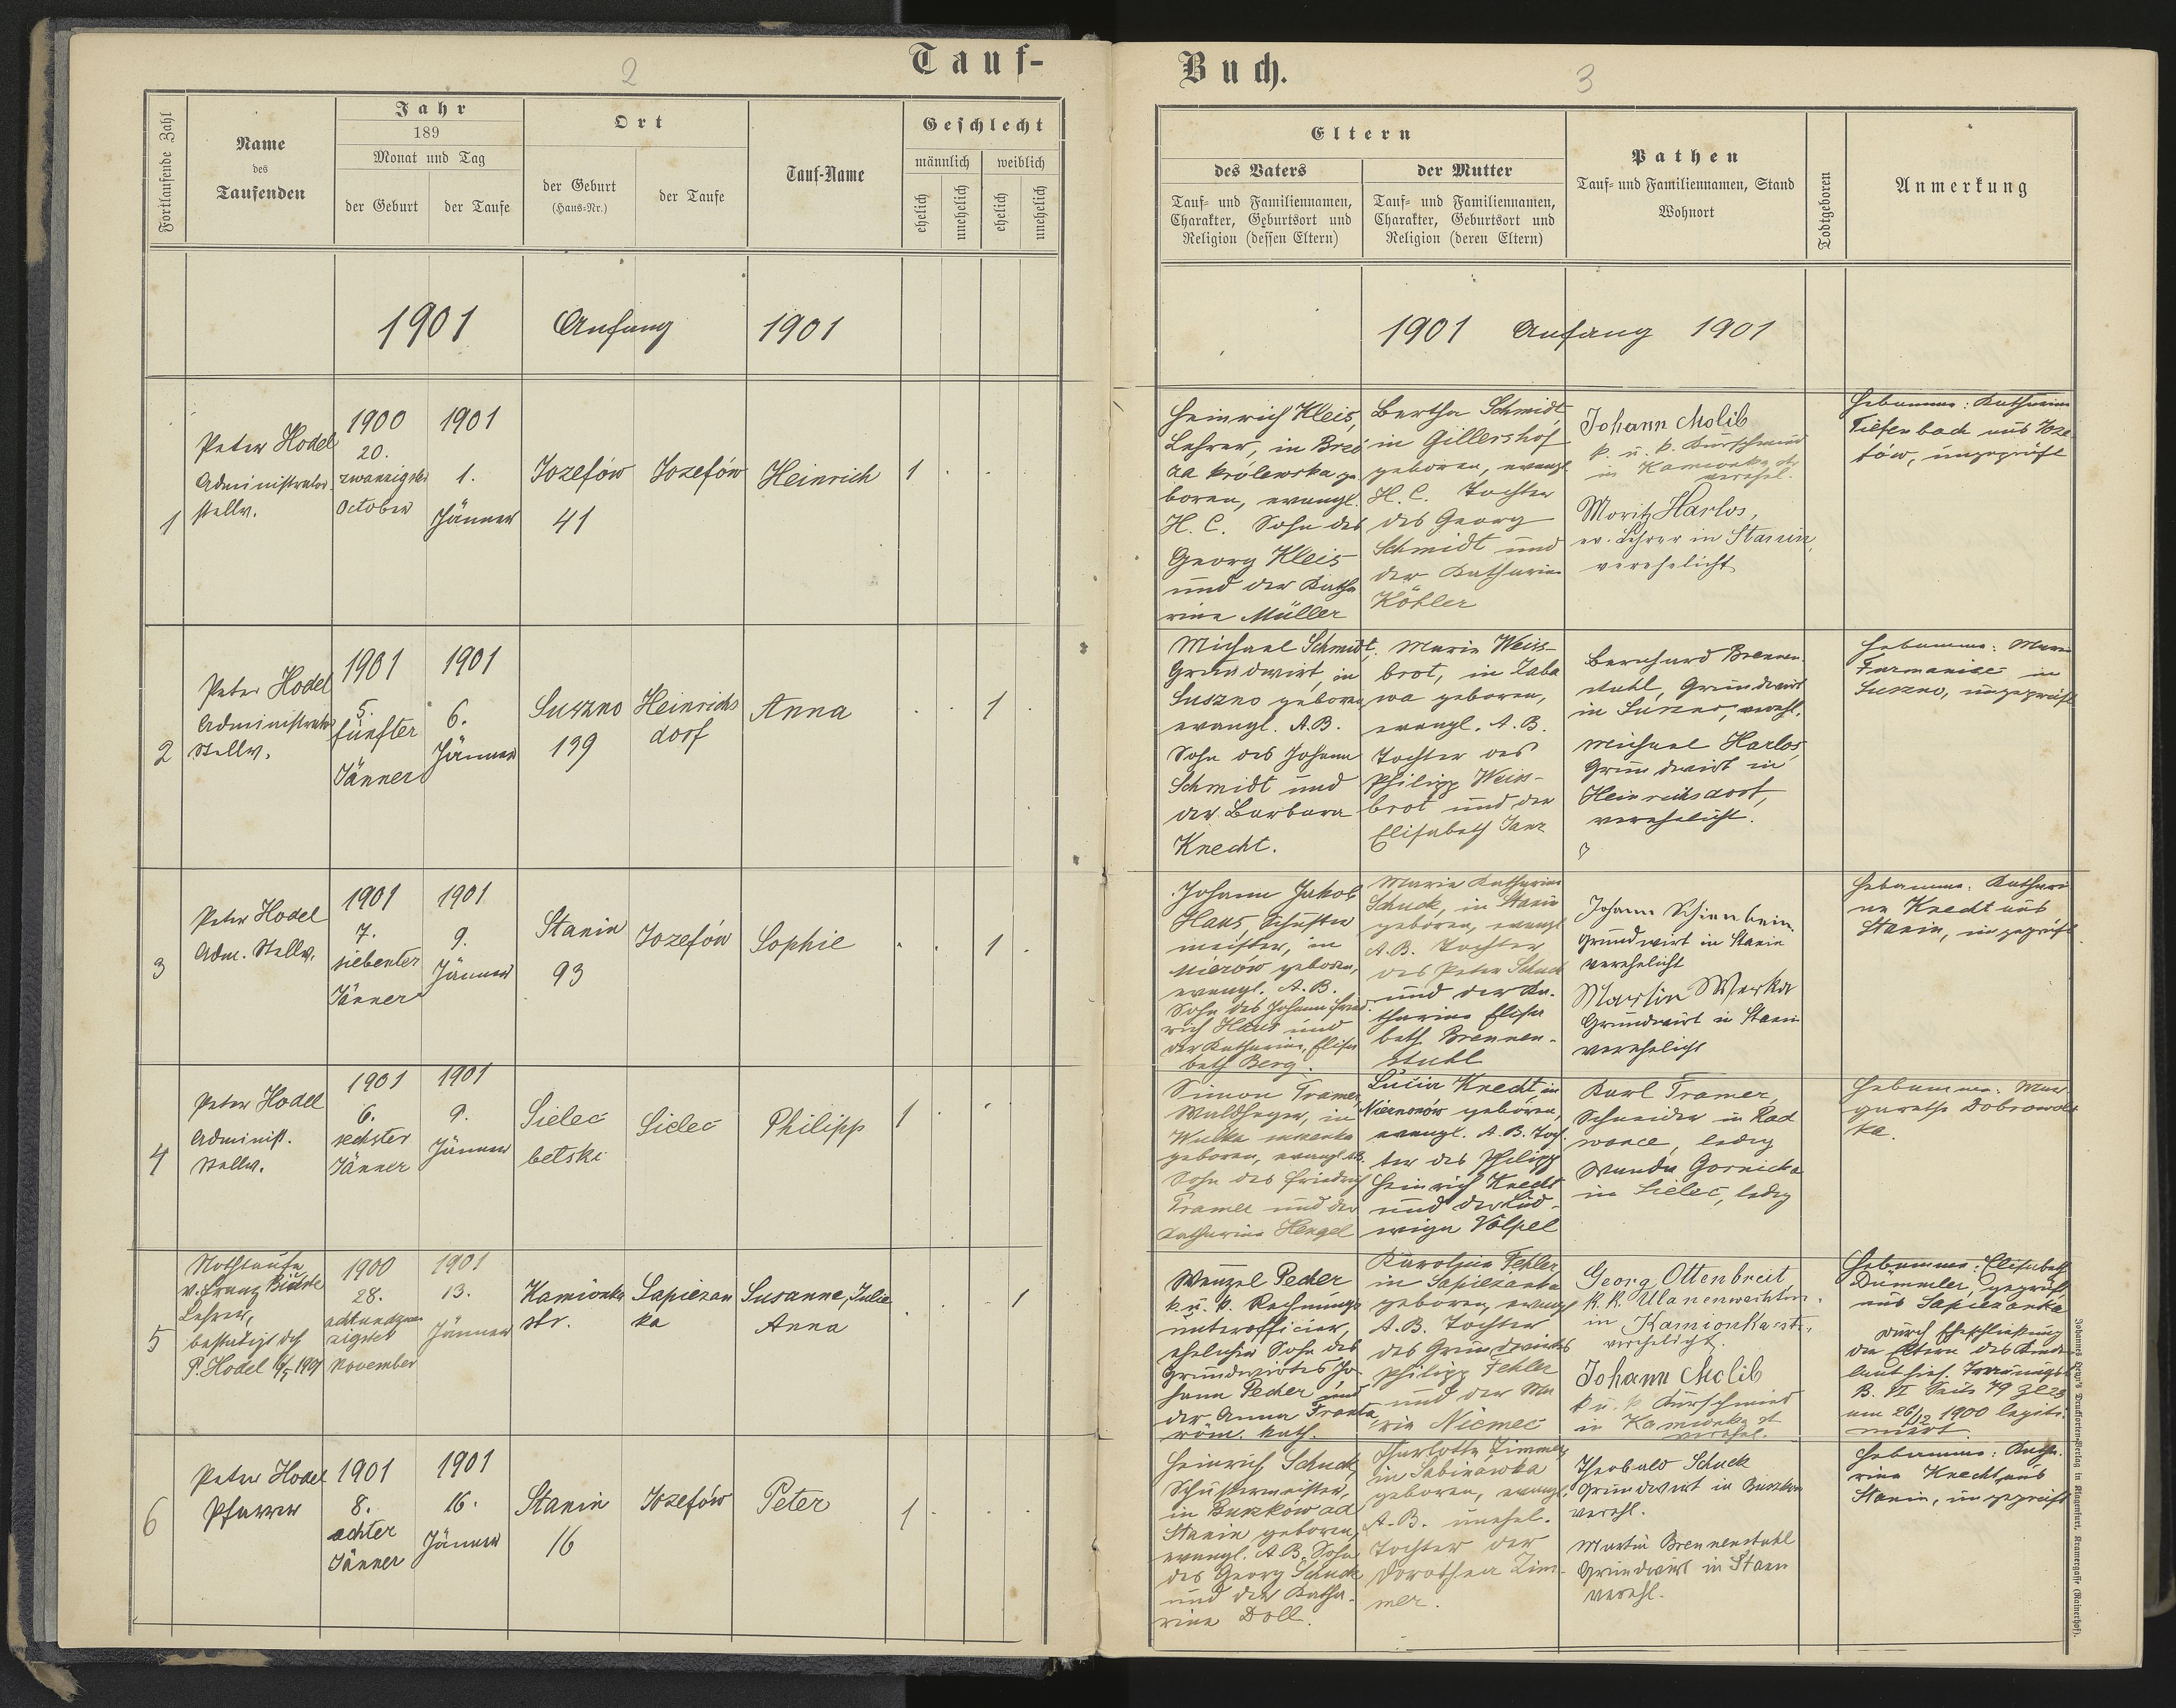 2
Tauf-
Fortlaufende Zahl
Name
des
Taufenden
Jahr
189
Monat und Tag
der Geburt
der Taufe
Ort
der Geburt
(Haus-Nr.)
der Taufe
Tauf-Name
Geschlecht
männlich
weiblich
ehelich
unehelich
ehelich
unehelich
1901
Anfang
1901
1
Peter Hodel
Administrator
stellv.
1900
20.
zwanzigster
October
1901
1.
Jänner
Jozefów
41
Jozefów
Heinrich
1
2
Peter Hodel
Administrator
Stellv.
1901
5.
fünfter
Jänner
1901
6.
Jänner
Suszno
139
Heinrichs
dorf
Anna
1
3
Peter Hodel
Adm. Stellv.
1901
7.
siebenter
Jänner
1901
9.
Jänner
Stanin
93
Jozefów
Sophie
1
4
Peter Hodel
Administ.
Stellv.
1901
6.
sechster
Jänner
1901
9.
Jänner
Sielec
betski
Sielec
Philipp
1
5
Nothtaufe
v. Franz
Lehrer,
bestätigt dch
P. Hodel 1901
1900
28.
achtundzwan
zigster
November
1901
13.
Jänner
Kamionka
str.
Sapiezan
ka
Susanne, Julie
Anna
1
6
Peter Hodel
Pfarrer
1901
8.
achter
Jänner
1901
16.
Jänner
Stanin
16
Jozefów
Peter
1
Buch.
3
Eltern
des Vaters
Tauf- und Familiennamen,
Charakter, Geburtsort und
Religion (dessen Eltern)
der Mutter
Tauf- und Familiennamen,
Charakter, Geburtsort und
Religion (deren Eltern)
Pathen
Tauf- und Familiennamen, Stand
Wohnort
Todtgeboren
Anmerkung
1901 Anfang 1901
Heinrich Kleis,
Lehrer, in Breó
za królewska ge
boren, evangl.
H. C. Sohn des
Georg Kleis
und der Katha
rina Müller
Bertha Schmidt,
in Gillershof
geboren, evangl
H. C. Tochter
des Georg
Schmidt und
der Katharina
Köhler
Johann Molib
k. u. k. Kurschmied
in Kamionka str
verehel.
Moritz Harlos,
ev. Lehrer in Stanin,
verehelicht
Hebamme: Katharina
Tiefenbach aus Joze
fów, ungeprüft
Michael Schmidt,
Grundwirt, in
Suszno geboren
evangl. A.B.
Sohn des Johann
Schmidt und
der Barbara
Knecht.
Maria Weiss-
brot, in Zaba
wa geboren,
evangl. A. B.
Tochter des
Philipp Weiss-
brot und der
Elisabeth Janz
Bernhard Brennen
stuhl, Grundwirt
in Suszno, verehl.
Michael Harlos,
Grundwirt in
Heinrichsdorf,
verehelicht.
Hebamme: Maria
in
Suszno, ungeprüft
Johann Jakob
Haus, Schuster
meister, in
geboren,
evangl. A. B.
Sohn des Johann Fried
rich Haus und
der Katharina, Elisa
beth Berg.
Maria Katharina
Schuck, in Stanin
geboren, evangl
A.B. Tochter
des Peter Schuck
und der Ka-
tharina Elisa
beth Brennen-
stuhl
Johann Schienbein
Grundwirt in Stanin
verehelicht
Martin
Grundwirt in Stanin
verehelicht
Hebamme: Kathari
na Knecht aus
Stanin, ungeprüft
Simon Tramer,
Waldheger, in
Wulka
geboren, evangl. A.B.
Sohn des Friedrich
Tramer und der
Katharina Hengel
Lucia Knecht, in
geboren,
evangl. A. B. Toch
ter des Philipp
Heinrich Knecht
und der Lud-
wiga Volpel
Karl Tramer,
Schneider in Rad
wance, ledig
Wanda Gornicka
in Sielec, ledig
Hebamme: Mar
garetha Dobrowols
ka.
Wenzel Pecher
k. u. k. Rechnungs
unterofficier,
ehelicher Sohn des
Grundwirtes Jo
hann Pecher und
der Anna
röm. kath.
Karolina Fehler
in Sapiezanka
geboren, evangl
A.B. Tochter
des Grundwirtes
Philipp Fehler
und der Ma
ria Niemec
Georg Ottenbreit,
k. k. Ulanenwachtm.
in Kamionka str.,
verehelicht.
Johann Molib
k u. k Kurschmied
in Kamionka st
verehel.
Hebamme: Elisabeth
Dümmler, geprüft,
aus Sapiezanka
Durch Eheschließung
der Eltern des Kindes
laut hies. Trauungs
B. VI Seite 79
am 26/12 1900 legiti
miert
Heinrich Schuck
Schustermeister,
in Buszków ad
Stanin geboren,
evangl. A.B. Sohn
des Georg Schuck
und der Katha-
rina Doll.
Charlotte Zimmer,
in Sabinówka
geboren, evangl.
A.B. unehel.
Tochter der
Dorothea Zim-
mer.
Theobald Schuck
Grundwirt in
verehl.
Martin Brennenstuhl
Grundwirt in Stanin
verehl.
Hebamme: Katha-
rina Knecht aus
Stanin, ungeprüft
Johannes Heyn's Drucksorten-Verlag in Klagenfurt, Kramergasse (Rainerhof).